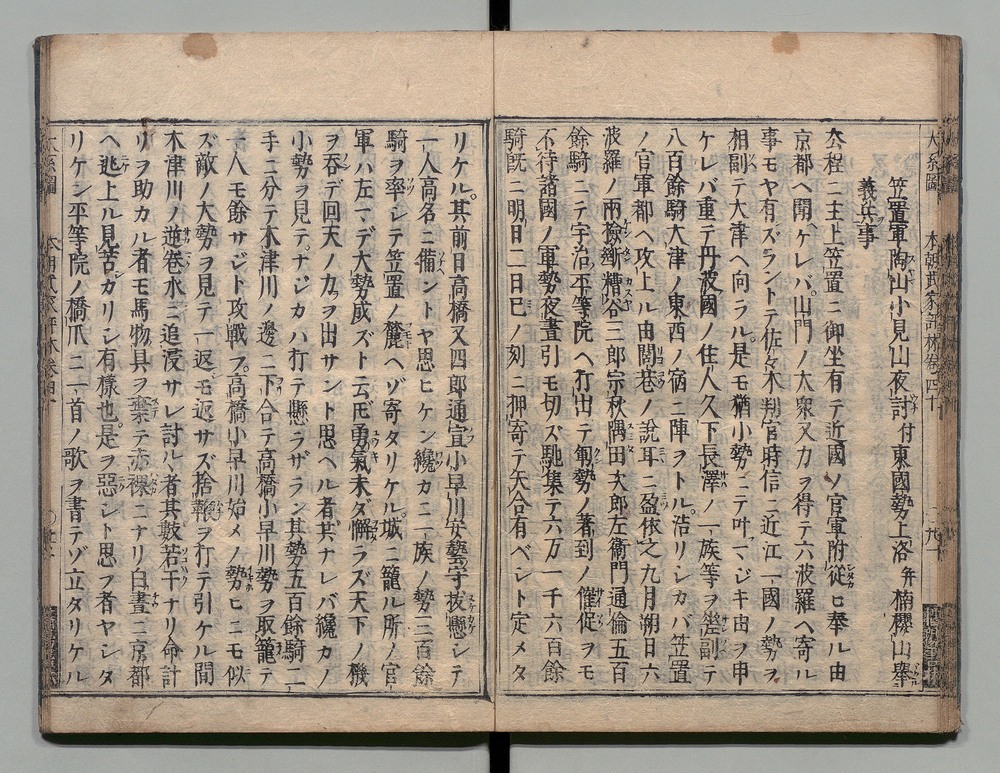 大系圖 本朝武家評林卷四十
笠置軍陶山小見山夜討付東國勢上洛并楠櫻山舉
義兵事
去程ニ主上笠置ニ御坐有テ近國ノ官軍附從ヒ奉ル由
京都ヘ聞ヘケレバ山門ノ大衆又力ヲ得テ六波羅ヘ寄ル
事モヤ有ズラントテ佐々木判官時信ニ近江一國ノ勢ヲ
相副テ大津ヘ向ラル是モ猶小勢ニテ叶マジキ由ヲ申
ケレバ重テ丹波國ノ住人久下長澤ノ一族等ヲ差副テ
八百餘騎大津ノ東西ノ宿ニ陣ヲトル浩リシカバ笠置
ノ官軍都ヘ攻上ル由閭巷ノ說耳ニ盈依之九月朔日六
波羅ノ兩檢斷糟谷三郎宗秋隅田次郎左衛門通倫五百
餘騎ニテ宇治平等院ヘ打出テ軍勢ノ著到ノ催促ヲモ
不待諸國ノ軍勢夜晝引モ切ズ馳集テ六万一千六百餘
騎既ニ明日二日巳ノ刻ニ押寄テ矢合有ベシト定メタ
リケル其前日高橋又四郎通宜小早川安藝守抜懸シテ
一人高名ニ備ントヤ思ヒケン纔カニ一族ノ勢三百餘
騎ヲ率シテ笠置ノ麓ヘゾ寄タリケル城ニ籠ル所ノ官
軍ハ左マデ大勢成ズト云𪜈勇氣未ダ懈ラズ天下ノ機
ヲ呑デ回天ノ力ヲ出サント思ヘル者共ナレバ纔カノ
小勢ヲ見テナジカハ打テ懸ラザラン其勢五百餘騎二
手ニ分テ木津川ノ邊ニ下合テ高橋小早川勢ヲ取籠テ
一人モ餘サジト攻戦フ高橋小早川始メノ勢ヒニモ似
ズ敵ノ大勢ヲ見テ一返モ返サズ捨鞭ヲ打テ引ケル間
木津川ノ逆卷水ニ追浸サレ討ルヽ者其數若干ナリ命計
リヲ助カル者モ馬物具ヲ棄テ赤裸ニナリ白晝ニ京都
ヘ逃上ル見苦シガリシ有樣也是ヲ惡シト思フ者ヤシタ
リケン平等院ノ橋爪ニ一首ノ歌ヲ書テゾ立タリケル
大系圖 本朝武家評林卷四十